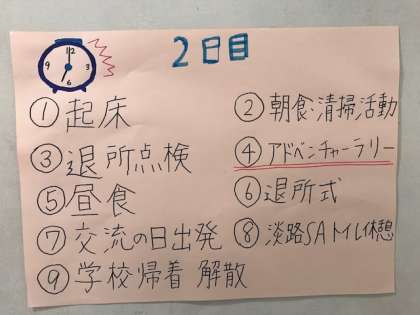 2日目
①起床
②朝食・清掃活動
③退所点検
④アドベンチャーラリー
⑤昼食
⑥退所式
⑦交流の日出発
⑧淡路SAトイレ休憩
⑨学校帰着 解散